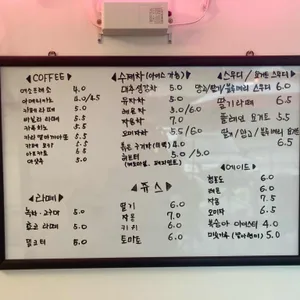 ◀COFFEE▶
에스프레소 4.0
아메리카노 4.0/4.5
카페라떼 5.0
바닐라 라떼 5.5
카푸치노 5.5
카라멜마끼아또 5.5
카페모카 5.5
아포카토 6.5
더치 5.0
◀라떼▶
녹차·고구마 5.0
초코 라떼 5.0
밀크티 5.0
◀수제차(아이스 가능)▶
대추생강차 5.0
유자차 5.0
레몬차 5.0/6.0
자몽차 7.0
오미자차 5.5/6.0
5.0/5.0
◀쥬스▶
딸기 6.0
자몽 7.0
키위 6.0
토마토 6.0
◀스무디/요거트 스무디▶
망고/딸기/블루베리 스무디 6.0
딸기라떼 6.5
플레인 요거트 5.5
딸기/망고/블루베리
6.5
◀에이드▶
청포도 6.0
레몬 6.0
자몽 7.5
오미자 6.5
복숭아 아이스티 4.0
5.0